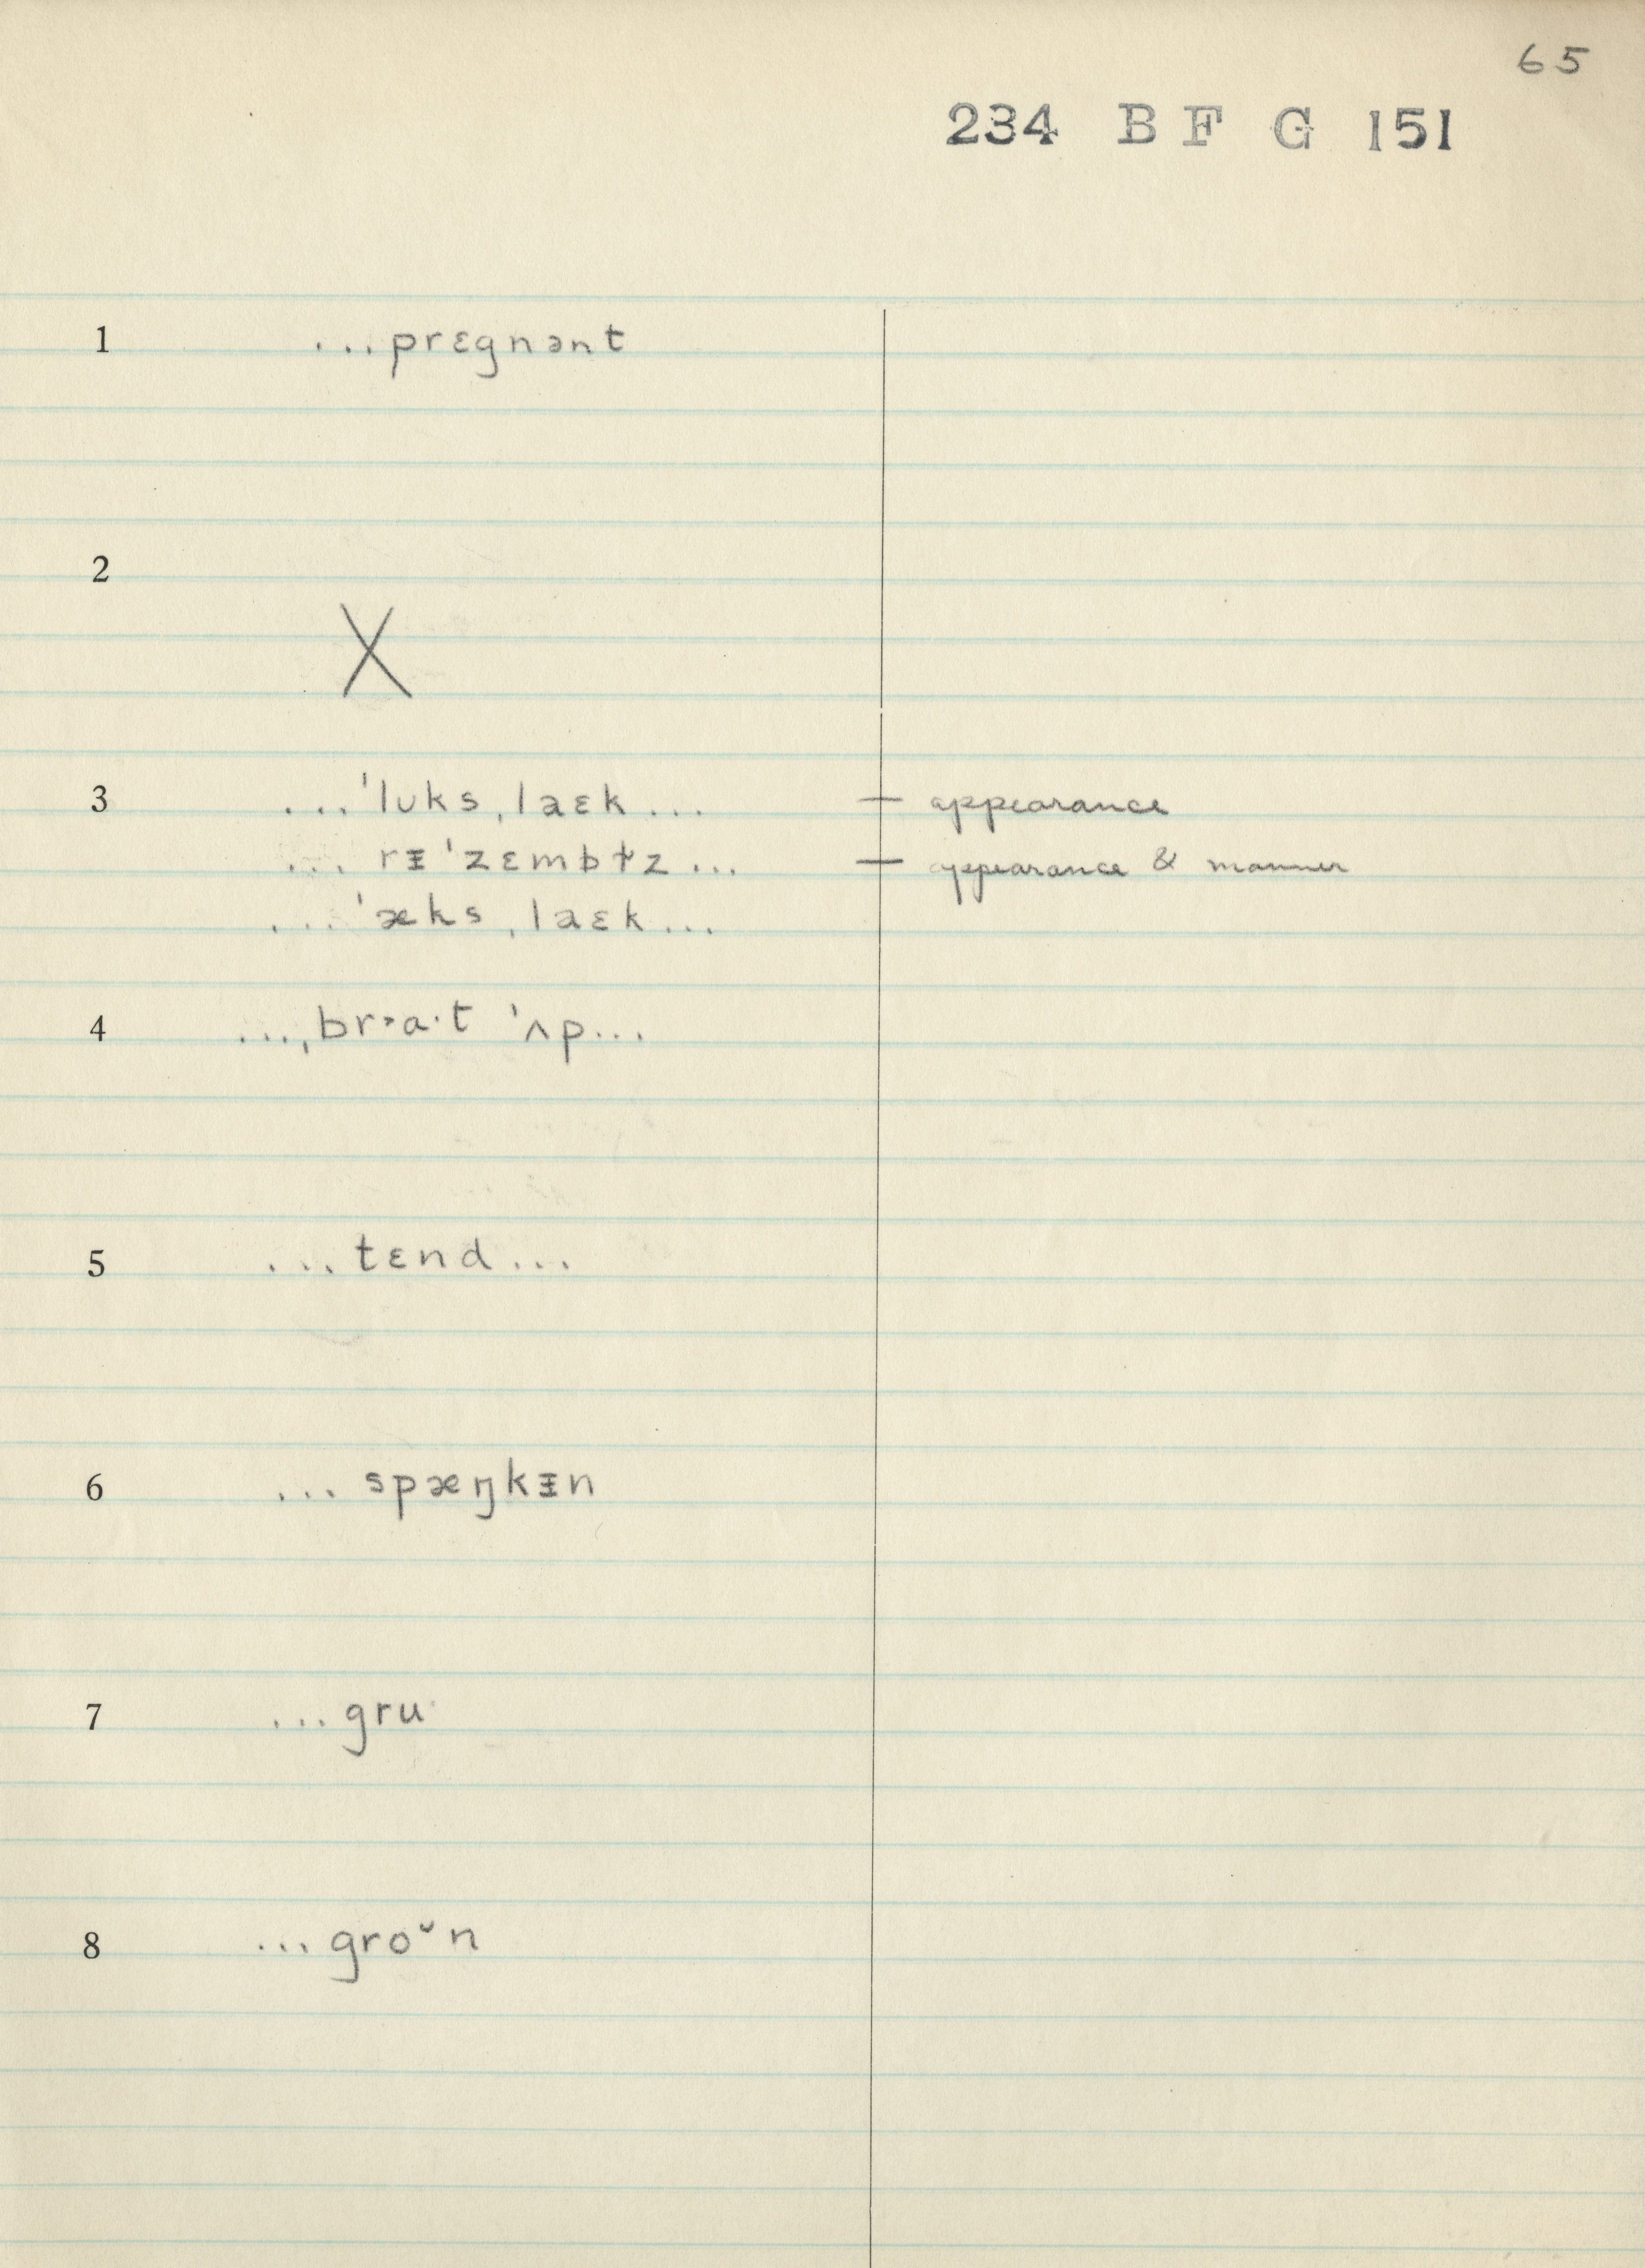 65
234 B F G 151
1 ...prɛgnənt
2 X
3 ...ˈlʊks ˌlaɛk... — appearance
... rᵻˈzɛmbɫ̩z ... — appearance & manner
... ˈæks ˌlaɛk...
4 ...ˌbr˃a·t ˈʌp...
5 ...tɛnd...
6 ... spæŋkᵻn
7 ...gru·
8 ...groᵕn